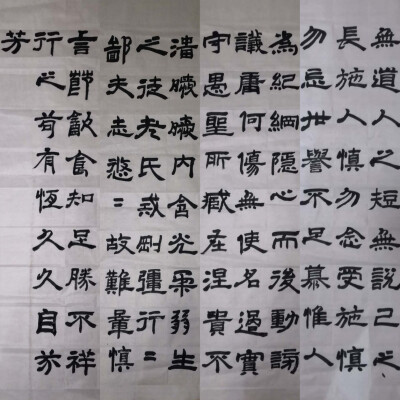 無道人之短無說己之
長施人慎勿念受施慎
勿忘世譽不足慕惟人
為紀綱隱心而後動謗
議庸何傷無使名過實
守愚聖所臧在涅貴不
淄曖曖內含光柔弱生
之徒老氏戒剛彊行〻
鄙夫志悠〻故難量慎
言節飲食知足勝不祥
行之苟有恆久久自芬
芳